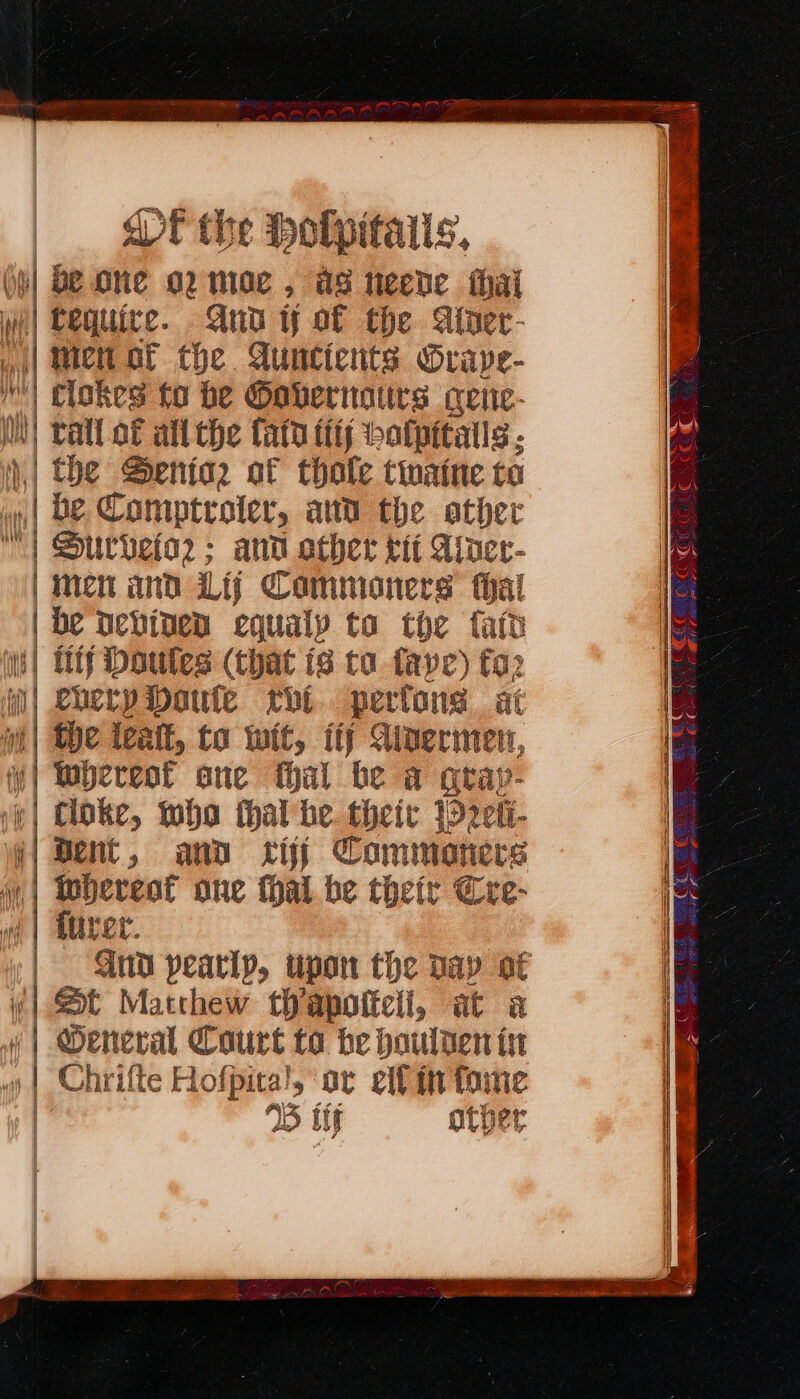 Of the Hoſpitalls.
be one or moe, as neede ſhal
require. And ij of the Alder-
men of the Auncients Graye-
clokes to be Governours gene-
rall of all the ſaid iiij Hoſpitalls;
the Senior of thoſe twaine to
be Comptroler, and the other
Surveior; and other xii Alder-
men and Lij Commoners ſhal
be devided equaly to the ſaid
iiij Houſes (that is to ſaye) for
every Houſe xvi perſons at
the leaſt, to wit, iij Aldermen,
whereof one ſhal be a gray-
cloke, who ſhal be their Preſi-
dent, and xiij Commoners
whereof one ſhal be their Tre-
ſurer.
And yearly, upon the day of
St Matthew th'apoſtell, at a
General Court to be houlden in
Chriſte Hoſpital, or elſ in ſome
B iij other